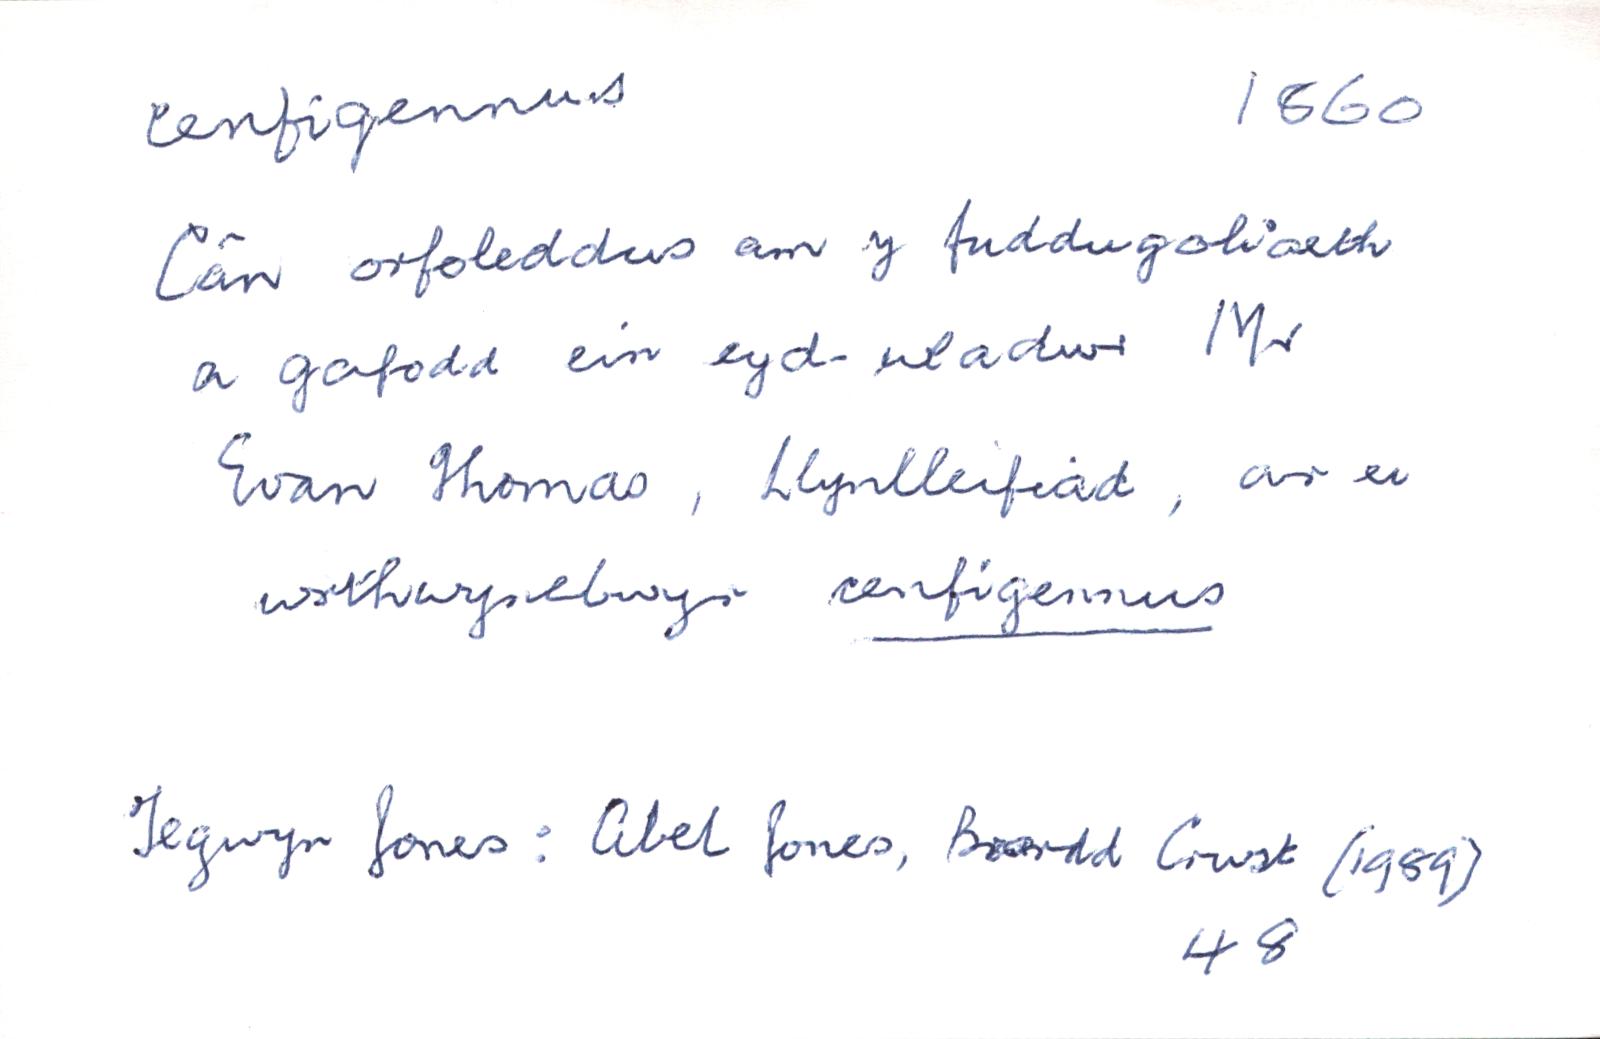 cenfigennus 1860
Cân orfoleddus am y fuddugoliaeth
a gafodd ein cyd-wladwr Mr
Evan Thomas, Llynlleifiad, ar ei
wrthwynebwyr cenfigennus
Tegwyn Jones: Abel Jones, Bardd Crwst (1989)
48